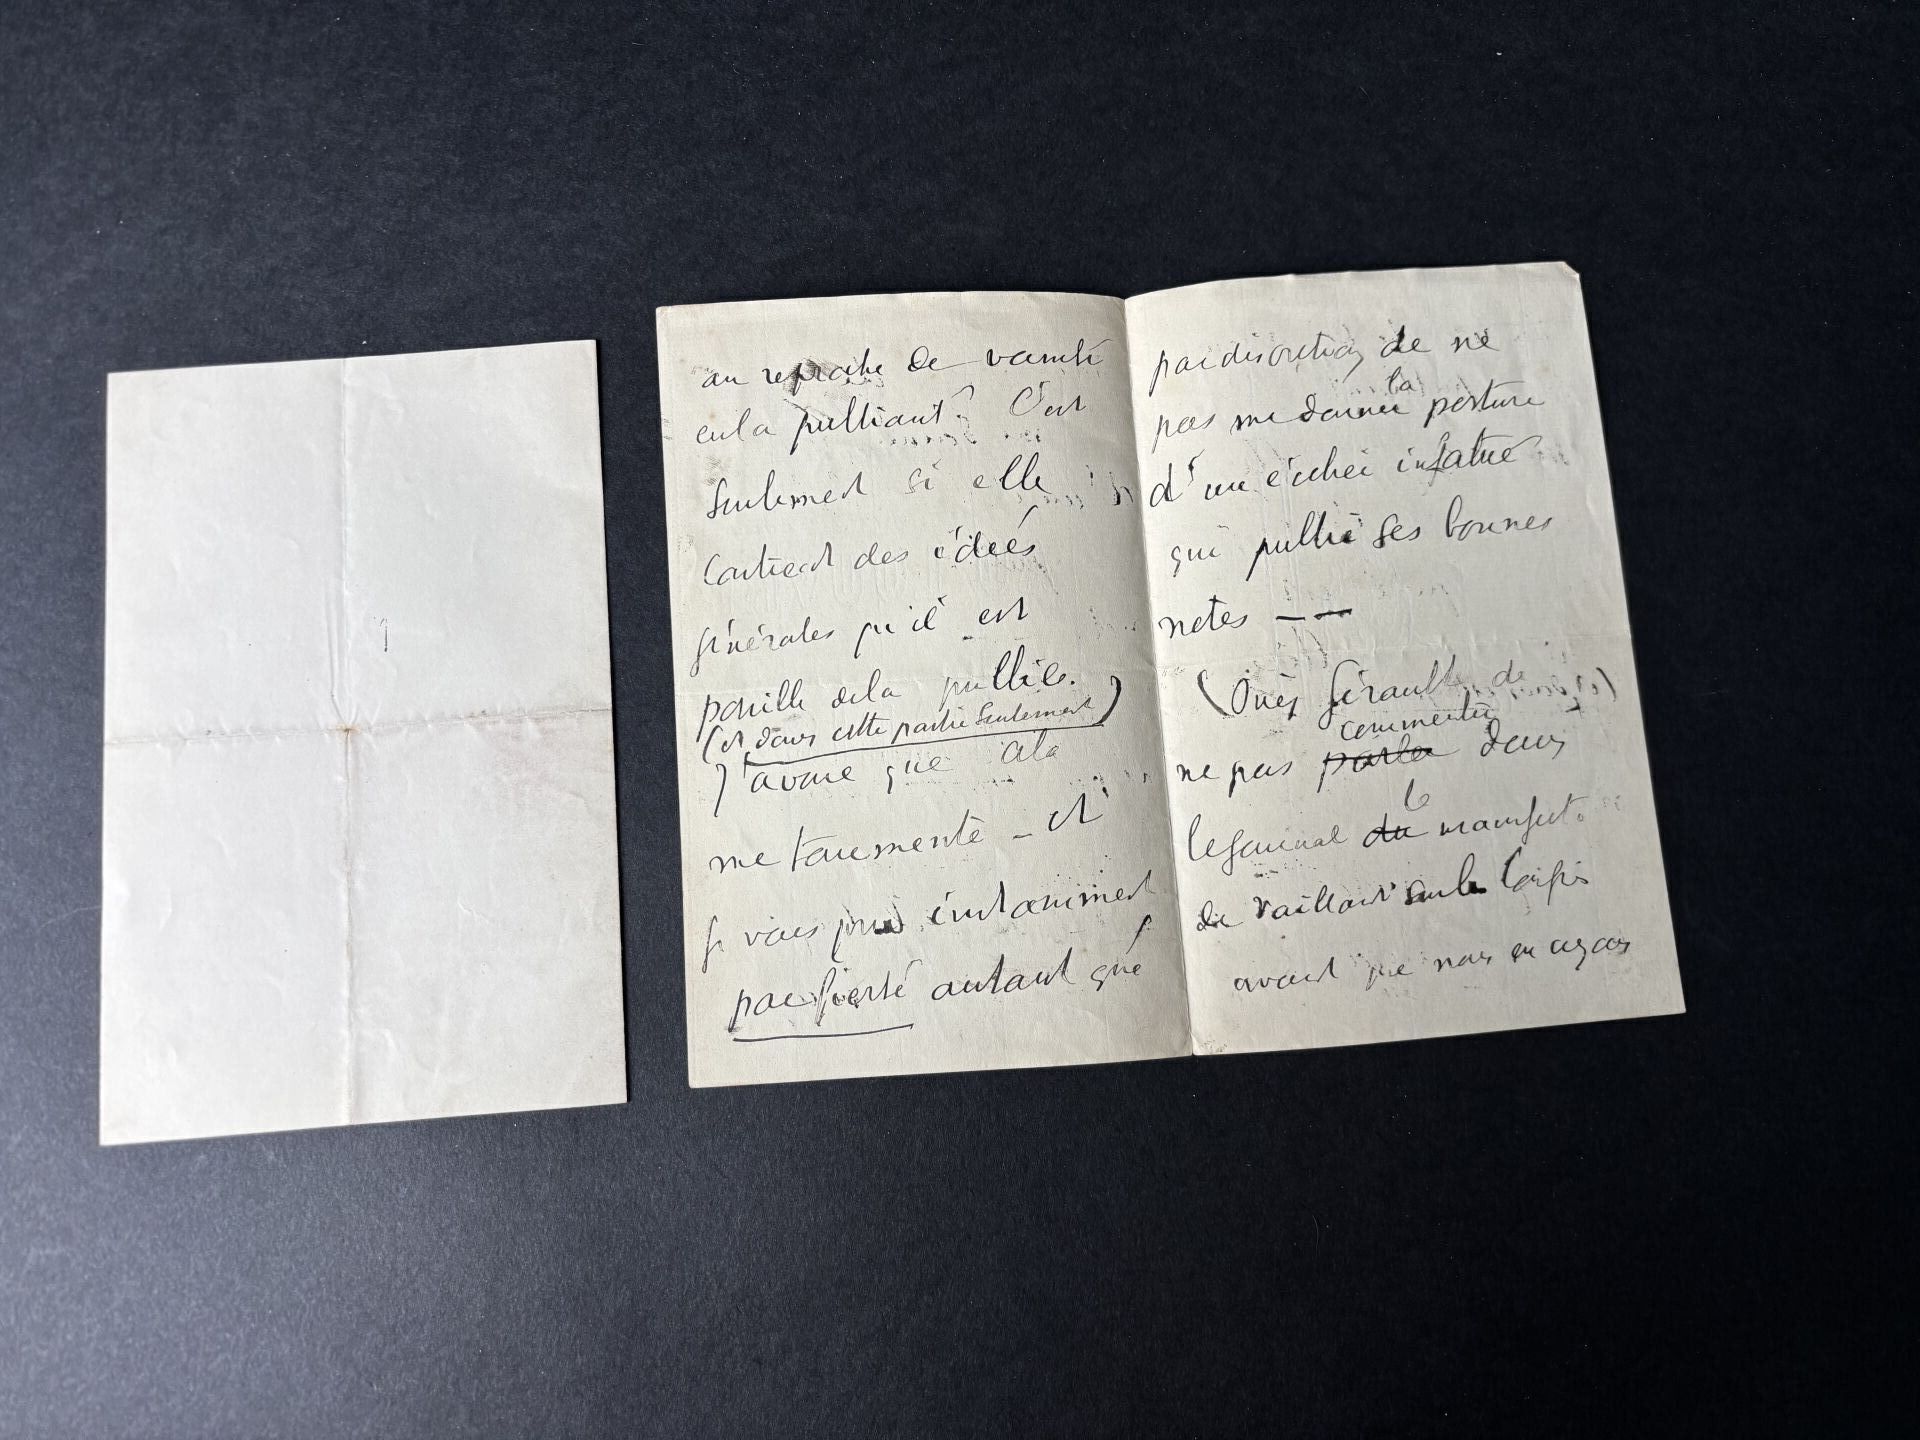 au reproche de vanité
en la publiant? C'est
seulement si elle
contient des idées
générales qu'il est
possible de la publier.
(et dans cette partie seulement)
J'avoue que cela
me tourmente — et
je vous prie instamment
par fierté autant que
par discrétion de ne
pas me donner la posture
d'un écolier infatué
qui publie ses bonnes
notes — —
( Gérault de
ne pas parler commenter dans
le journal du le manifest.
de Vaillant sur le
avant que nous en ayons